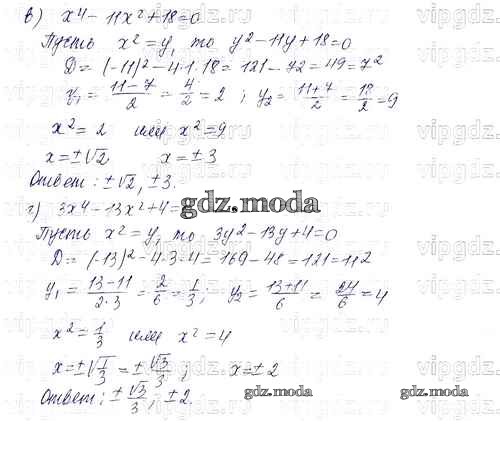 в) x⁴ – 11x² + 18 = 0
Пусть x² = y, то y² – 11y + 18 = 0
D = (–11)² – 4·1·18 = 121 – 72 = 49 = 7²
y₁ = (11–7)/2 = 4/2 = 2 ; y₂ = (11+7)/2 = 18/2 = 9
x² = 2 или x² = 9
x = ±√2, x = ±3
Ответ: ±√2, ±3.
г) 3x⁴ – 13x² + 4 =
gdz.moda
Пусть x² = y, то 3y² – 13y + 4 = 0
D = (–13)² – 4·3·4 = 169 – 48 = 121 = 11²
y₁ = (13–11)/(2·3) = 2/6 = 1/3 ; y₂ = (13+11)/6 = 24/6 = 4
x² = 1/3 или x² = 4
x = ±√(1/3) = ±√3/3 ; x = ±2
Ответ: ±√3/3, ±2.
gdz.moda gdz.moda
vipgdz.ru